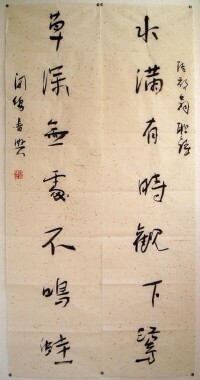 陸放翁聯語
水滿有時觀下鷺
草深無處不鳴蛙